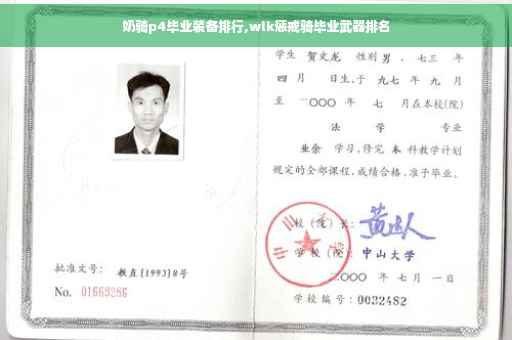 奶骑p4毕业装备排行,wlk惩戒骑毕业武器排名
学生 贺文龙 性别 男，七三 年
四 月 日生,于 九七 年 九 月
至 二〇〇〇 年 七 月在本校(院)
法 学 专业
业余 学习,修完 本 科教学计划
规定的全部课程,成绩合格,准予毕业。
校(院)长:
学校(院): 中山大学
二〇〇〇 年 七 月 一 日
学校编号: 0032482
批准文号: 教直[1993]8号
No. 01669286